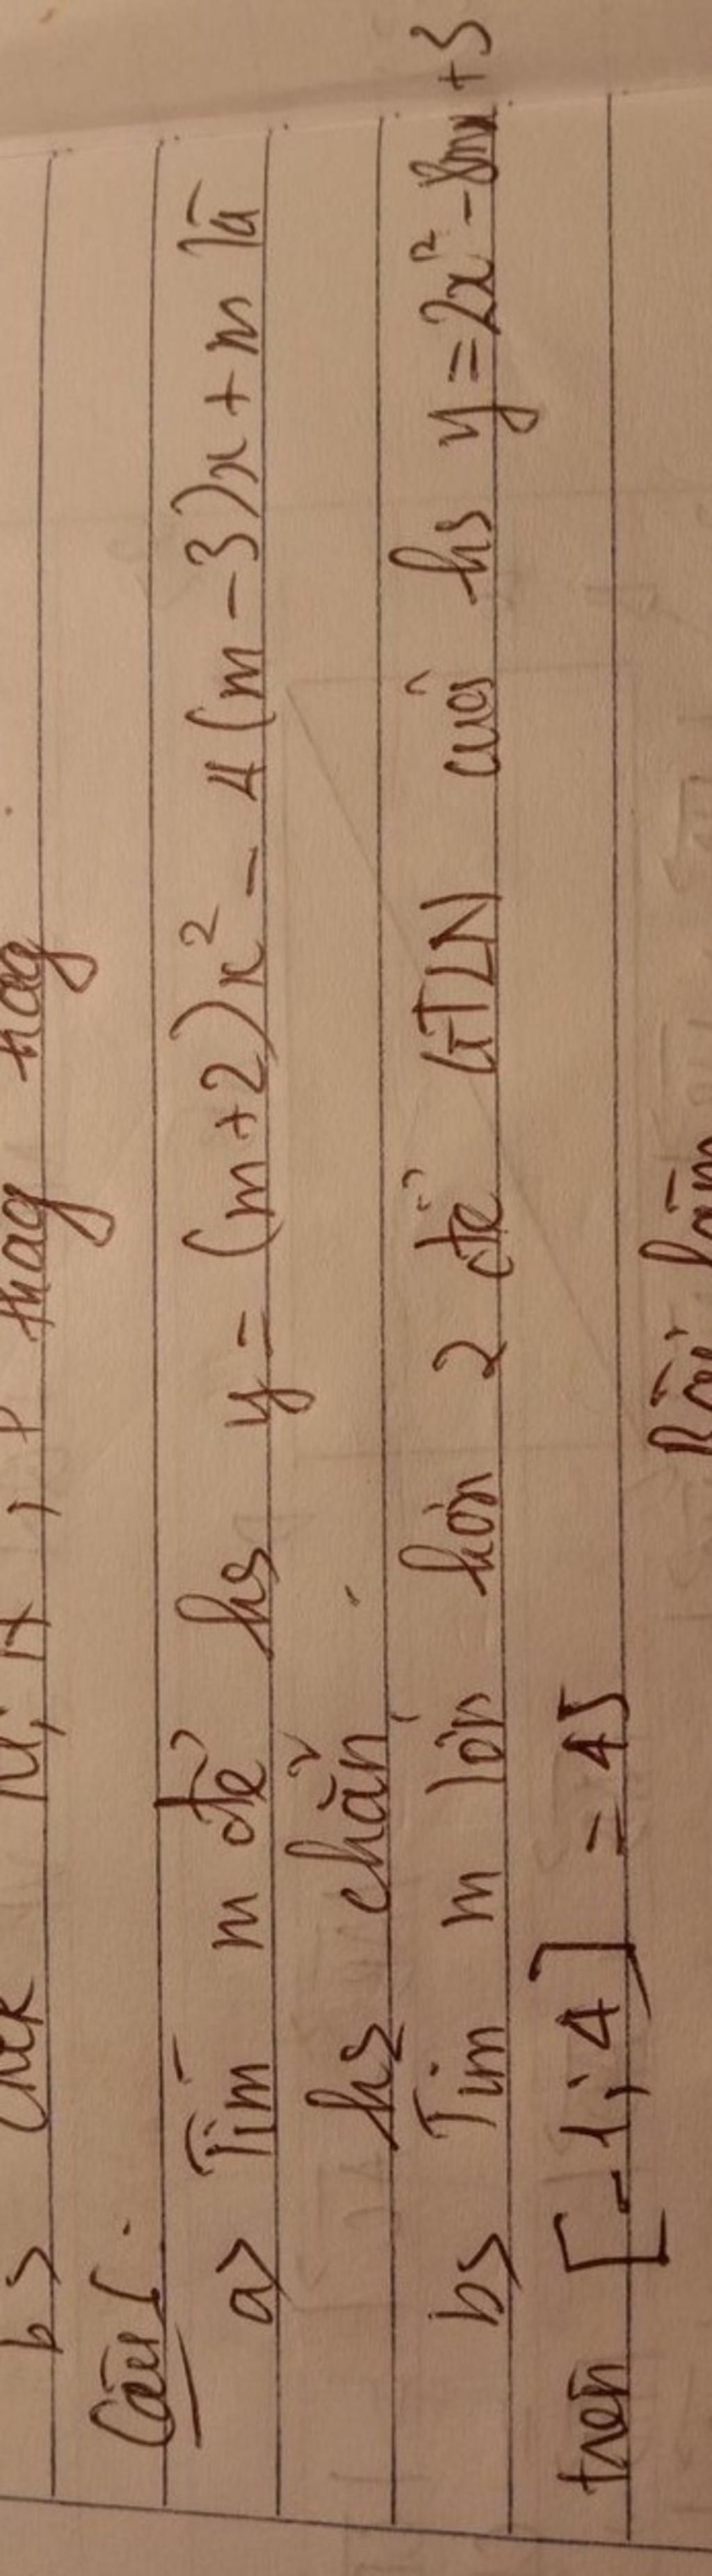 b> thag hag
Câu 1.
a> Tìm m để hs y = (m+2)x² - 4(m-3)x + m là
hs chẵn
b> Tìm m lớn hơn 2 để GTLN của hs y = 2x² - 8mx + 3
trên [-1; 4] = 45